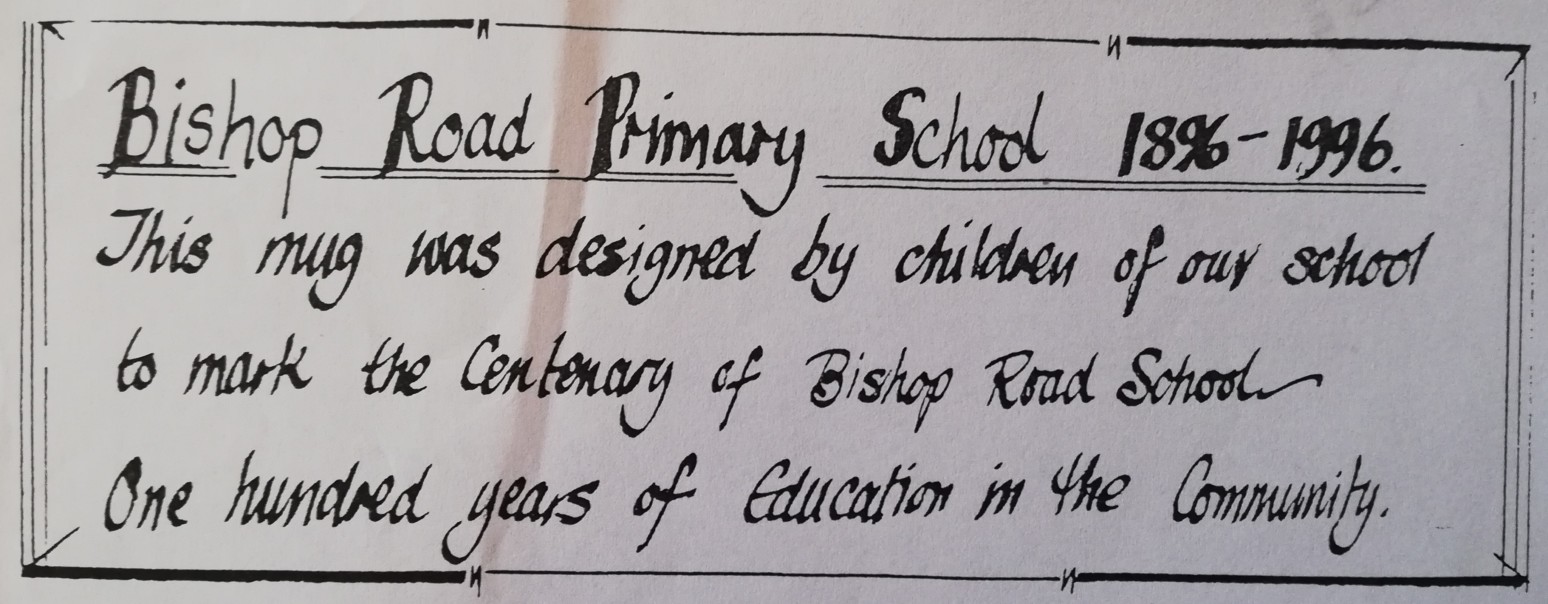 Bishop Road Primary School 1896-1996.
This mug was designed by children of our school
to mark the Centenary of Bishop Road School
One hundred years of Education in the Community.